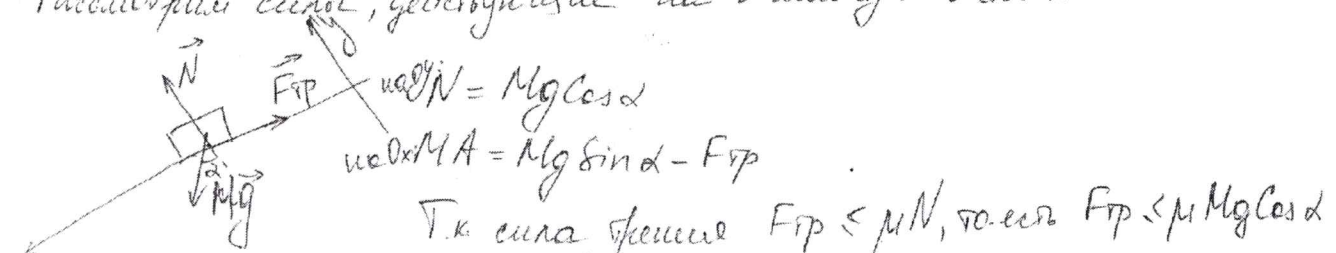 Рассмотрим силы, действующие на
y
N⃗
F⃗тр
на Oy: N = Mg Cos α
на Ox: MA = Mg Sin α - Fтр
α
Mg⃗
Т.к. сила трения Fтр ≤ μN, то есть Fтр ≤ μMg Cos α